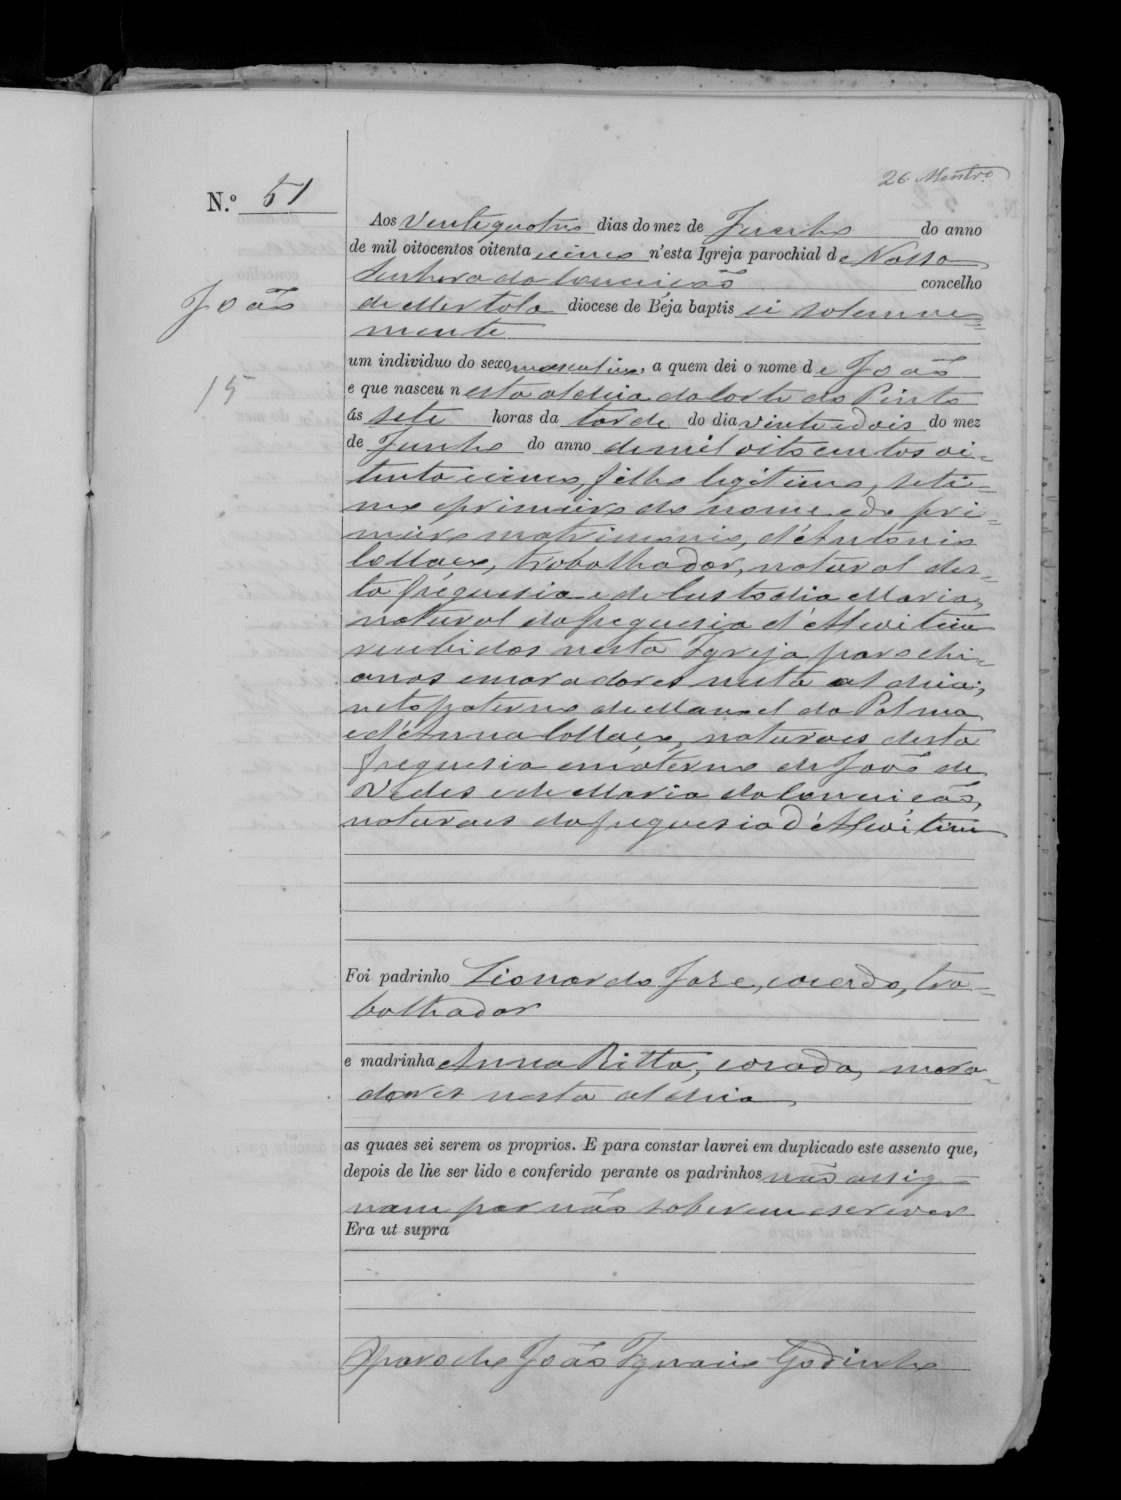 26. Montro.
N.º 51
Aos vinte quatro dias do mez de Junho do anno
de mil oitocentos oitenta e cinco n'esta Igreja parochial de Nossa
Senhora da Conceição concelho
de Mertola diocese de Béja baptisei solemne=
mente
João
um individuo do sexo masculino, a quem dei o nome de João
15
e que nasceu nesta aldeia da Corte do Pinto
ás sete horas da tarde do dia vinte e dois do mez
de Junho do anno de mil oitocentos oi=
tenta e cinco, filho legitimo, seti=
mo e primeiro do nome e do pri=
meiro matrimonio, d'Antonio
Collaço, trabalhador, natural des=
ta freguesia e de Custodia Maria,
natural da freguesia d'
recebidos nesta Igreja parochi=
anos e moradores nesta aldeia;
neto paterno de Manoel da Palma
e d'Anna Collaço, naturaes desta
freguesia e materno de João de
e de Maria da Conceição,
naturaes da freguesia d'
Foi padrinho Lionardo Jose, casado, tra=
balhador
e madrinha Anna Ritta, casada, mora=
dores nesta aldeia,
as quaes sei serem os proprios. E para constar lavrei em duplicado este assento que,
depois de lhe ser lido e conferido perante os padrinhos não assig=
nam por não saberem escrever
Era ut supra
O parocho João Ignacio Godinho